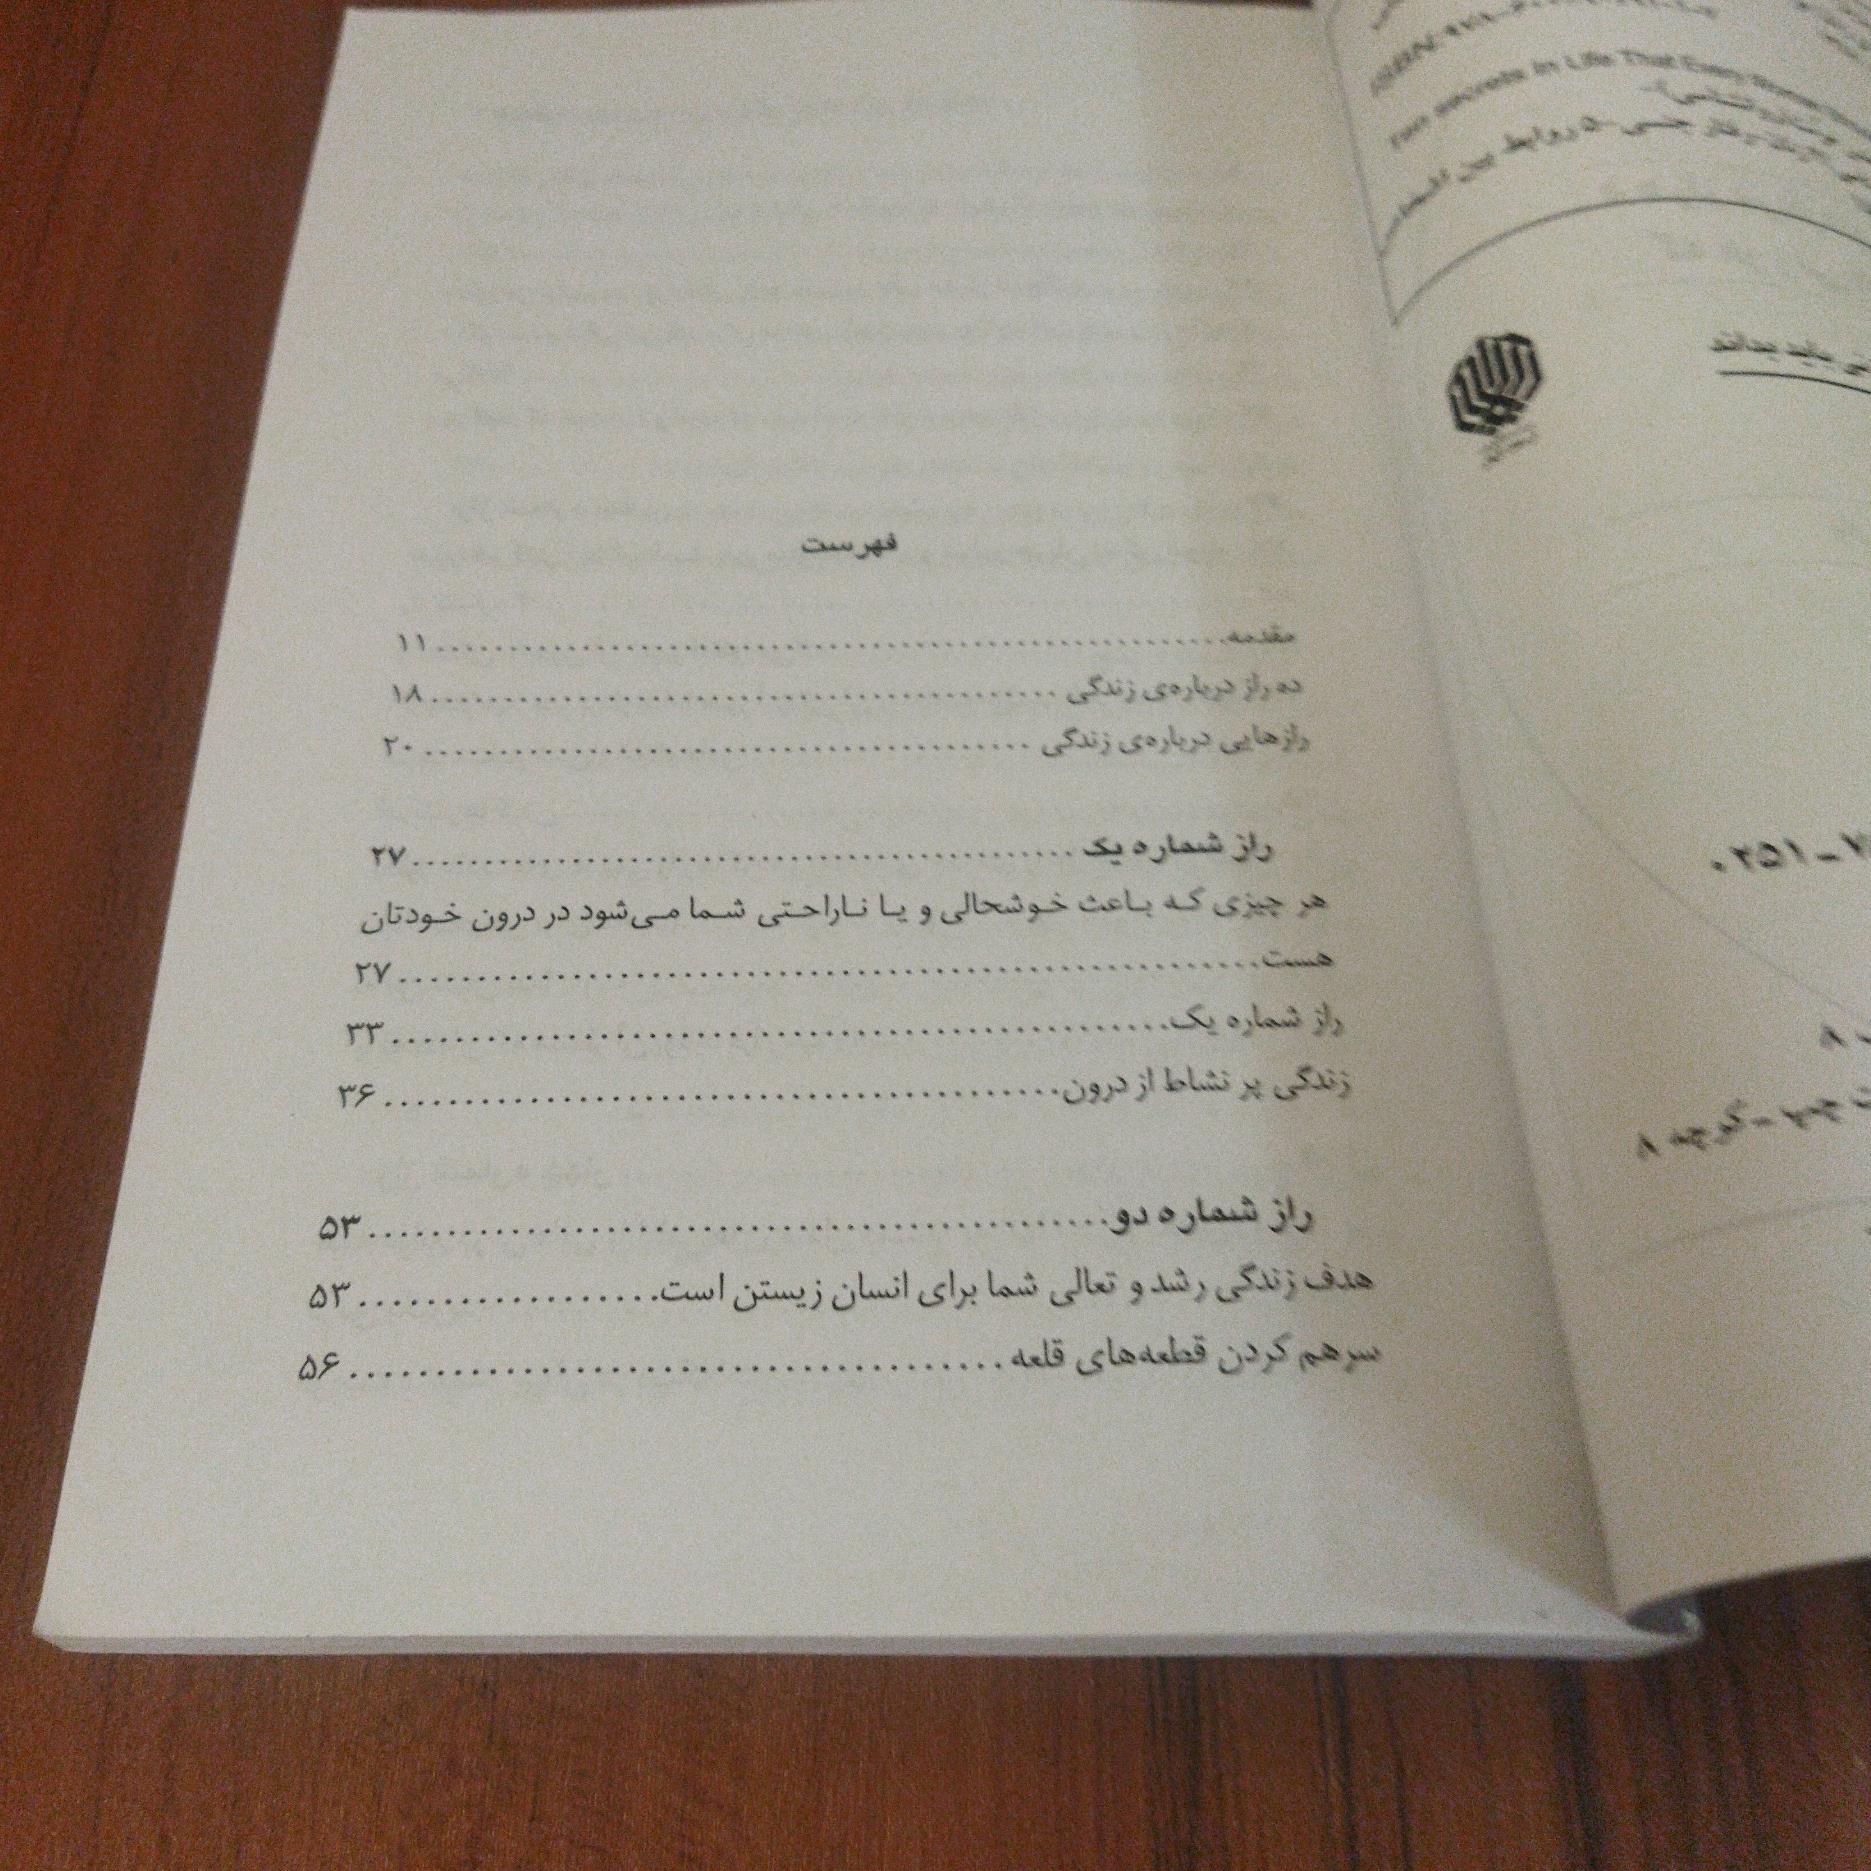 فهرست
مقدمه........................................................۱۱
ده راز درباره‌ی زندگی ............................................۱۸
رازهایی درباره‌ی زندگی ..........................................۲۰
راز شماره یک ..............................................۲۷
هر چیزی که باعث خوشحالی و یا ناراحتی شما می‌شود در درون خودتان
هست..........................................................۲۷
راز شماره یک..................................................۳۳
زندگی پر نشاط از درون..........................................۳۶
راز شماره دو................................................۵۳
هدف زندگی رشد و تعالی شما برای انسان زیستن است...................۵۳
سرهم کردن قطعه‌های قلعه.......................................۵۶
ISBN
In Life That Every
روابط بین
باید بدانند
۰۲۵۱ -
چپ - کوچه ۸